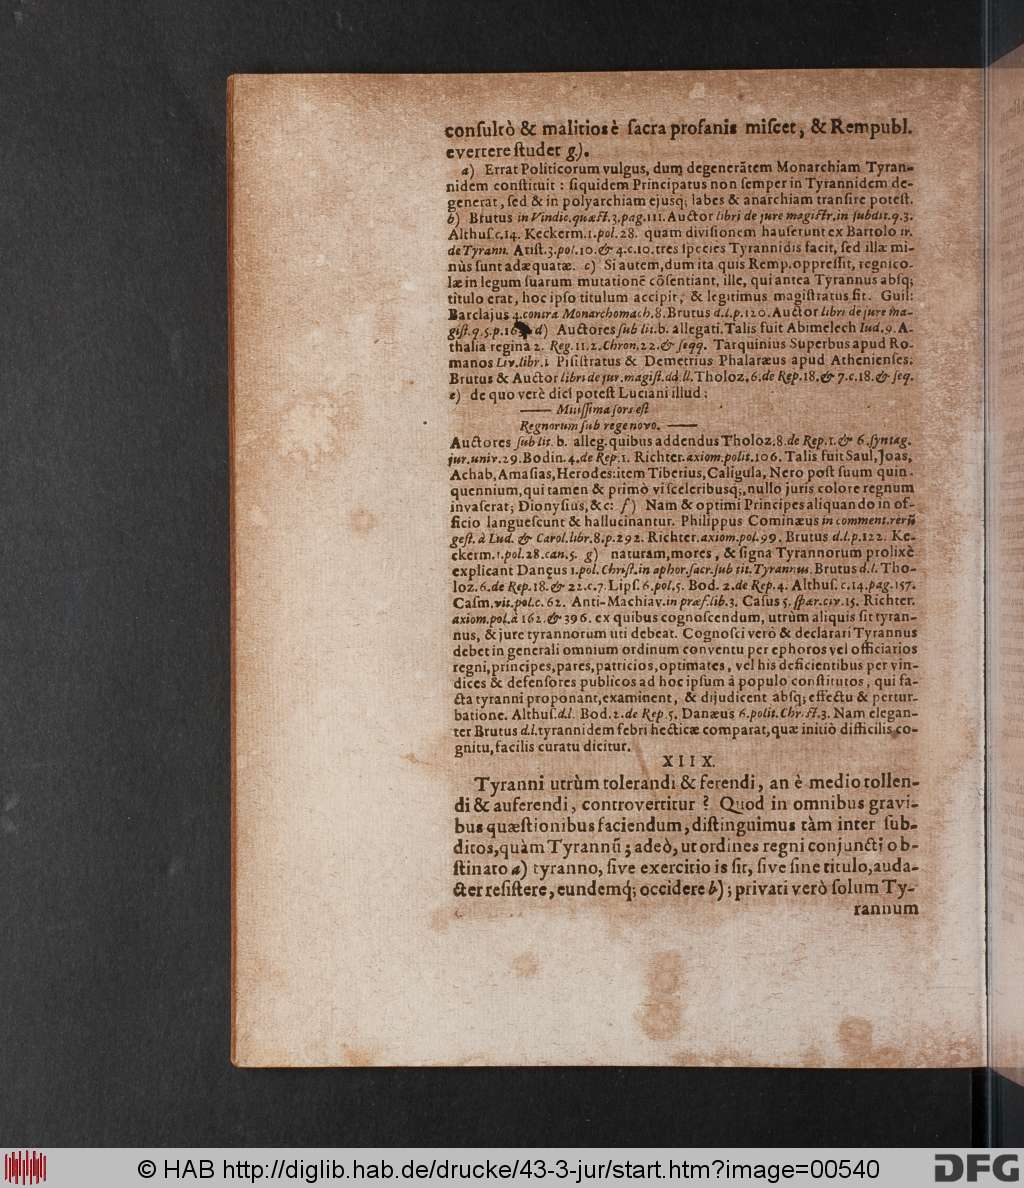 conſultò & malitiosè ſacra profanis miſcet, & Rempubl.
evertere ſtudet g).
a) Errat Politicorum vulgus, dum degenerãtem Monarchiam Tyran-
nidem conſtituit : ſiquidem Principatus non ſemper in Tyrannidem de-
generat, ſed & in polyarchiam ejusq; labes & anarchiam tranſire poteſt.
b) Brutus in Vindic.quæſt.3.pag.111. Auctor libri de jure magiſtr.in ſubdit.q.3.
Althuſ.c.14. Keckerm.1.pol.28. quam diviſionem hauſerunt ex Bartolo tr.
de Tyrann. Ariſt.3.pol.10.& 4.c.10. tres ſpecies Tyrannidis facit, ſed illæ mi-
nùs ſunt adæquatæ. c) Si autem, dum ita quis Remp. oppreſſit, regnico-
læ in legum ſuarum mutationē cōſentiant, ille, qui antea Tyrannus abſq;
titulo erat, hoc ipſo titulum accipit, & legitimus magiſtratus fit. Guil:
Barclajus 4.contra Monarchomach.8. Brutus d.l.p.120. Auctor libri de jure ma-
giſt.q.5.p. d) Auctores ſub lit.b. allegati. Talis fuit Abimelech Iud.9. A-
thalia regina 2. Reg.11.2.Chron.22.& ſeqq. Tarquinius Superbus apud Ro-
manos Liv.libr.1 Piſiſtratus & Demetrius Phalaræus apud Athenienſes.
Brutus & Auctor libri de jur.magiſt.dd.ll. Tholoz.6.de Rep.18.& 7.c.18.& ſeq.
e) de quo verè dici poteſt Luciani illud:
—— Mitiſſima ſors eſt
Regnorum ſub rege novo. ——
Auctores ſub lit. b. alleg. quibus addendus Tholoz.8.de Rep.1.& 6.ſyntag.
jur.univ.29. Bodin.4.de Rep.1. Richter.axiom.polit.106. Talis fuit Saul, Joas,
Achab, Amaſias, Herodes: item Tiberius, Caligula, Nero poſt ſuum quin-
quennium, qui tamen & primò vi ſceleribusq;, nullo juris colore regnum
invaſerat; Dionyſius, &c: f) Nam & optimi Principes aliquando in of-
ficio langueſcunt & hallucinantur. Philippus Cominæus in comment.rerū
geſt. à Lud. & Carol.libr.8.p.292. Richter.axiom.pol.99. Brutus d.l.p.122. Ke-
ckerm.1.pol.28.can.5. g) naturam, mores, & ſigna Tyrannorum prolixè
explicant Danęus 1.pol.Chriſt.in aphor.ſacr.ſub tit.Tyrannus. Brutus d.l. Tho-
loz.6.de Rep.18.& 22.c.7. Lipſ.6.pol.5. Bod. 2.de Rep.4. Althuſ. c.14.pag.157.
Caſm.vit.pol.c. 62. Anti-Machiav.in præf.lib.3. Caſus 5.ſpær.civ.15. Richter.
axiom.pol.à 162.& 396. ex quibus cognoſcendum, utrùm aliquis ſit tyran-
nus, & jure tyrannorum uti debeat. Cognoſci verò & declarari Tyrannus
debet in generali omnium ordinum conventu per ephoros vel officiarios
regni, principes, pares, patricios, optimates, vel his deficientibus per vin-
dices & defenſores publicos ad hoc ipſum à populo conſtitutos, qui fa-
cta tyranni proponant, examinent, & dijudicent abſq; effectu & pertur-
batione. Althuſ.d.l. Bod. 2.de Rep.5. Danæus 6.polit.Chriſt.3. Nam elegan-
ter Brutus d.l. tyrannidem febri hecticæ comparat, quæ initiò difficilis co-
gnitu, facilis curatu dicitur.
XIIX.
Tyranni utrùm tolerandi & ferendi, an è medio tollen-
di & auferendi, controvertitur? Quod in omnibus gravi-
bus quæſtionibus faciendum, diſtinguimus tàm inter ſub-
ditos, quàm Tyrannū; adeò, ut ordines regni conjuncti ob-
ſtinato a) tyranno, ſive exercitio is ſit, ſive ſine titulo, auda-
cter reſiſtere, eundemq; occidere b); privati verò ſolum Ty-
rannum
© HAB http://diglib.hab.de/drucke/43-3-jur/start.htm?image=00540
DFG